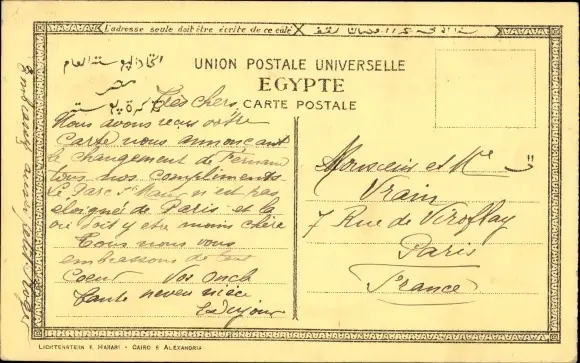 L'adresse seule doit être écrite de ce côté
اتحاد بوستة العام
مصر
تذكرة بوستة
UNION POSTALE UNIVERSELLE
EGYPTE
CARTE POSTALE
Très chers,
Nous avons reçu votre
Carte nous annonçant
le changement de Fernand
tous nos compliments
Le Parc St Maur n'est pas
éloigné de Paris et la
vie doit y etre moins chère
Tous nous vous
embrassons de tout
Coeur Vos oncle
tante neveu nièce
Embrassez aussi petit Roger
Monsieur et Me
Vrain
7 Rue de Viroflay
Paris
France
LICHTENSTEIN & HARARI - CAIRO & ALEXANDRIA